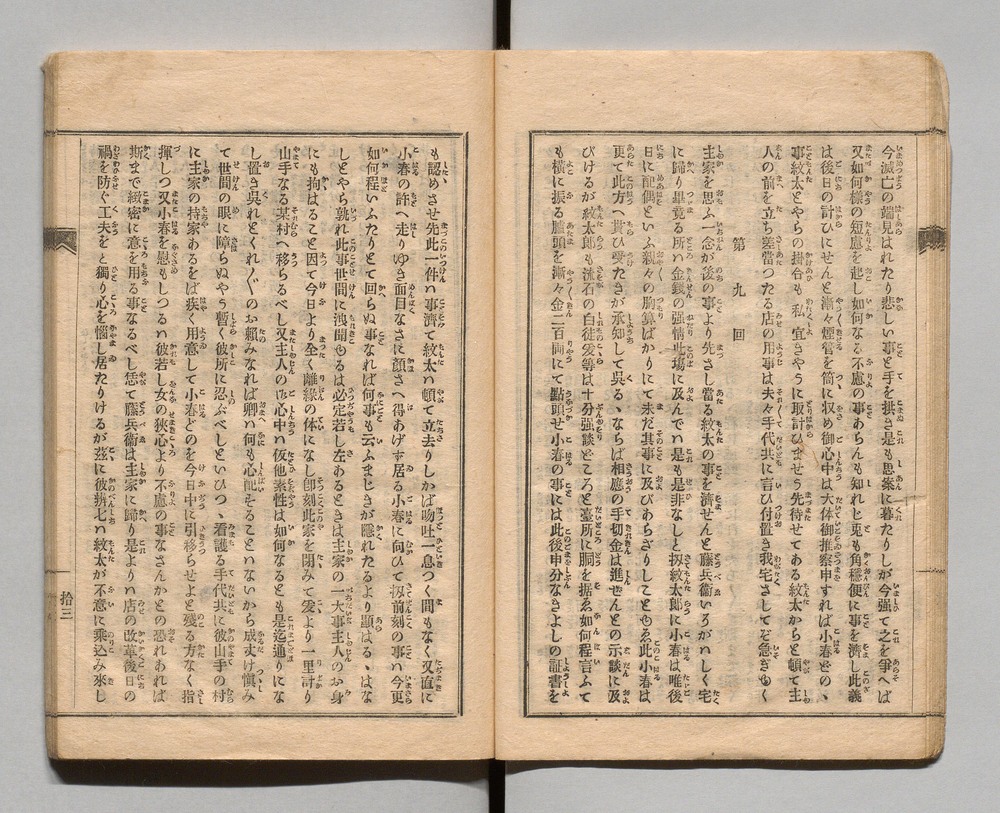 今滅亡の端見はれたり悲しい事と手を拱き是も思案に暮たりしが今强て之を爭へば
又如何樣の短慮を起し如何なる不慮の事あらんも知れじ兎も角穩便に事を濟し此義
は後日の計ひにせんと漸々煙管を筒に収め御心中は大体御推察申すれば小春どの、
事紋太とやらの掛合も私宜きやうに取計ひませう先待せてある紋太からと頓て主
人の前を立ち差當つたる店の用事は夫々手代共に言ひ付置き我宅さしてぞ急ぎゆく
第九回
主家を思ふ一念が後の事より先さし當る紋太の事を濟せんと藤兵衞いろがいしく宅
に歸り畢竟る所ハ金錢の强情此塲に及んでハ是も是非なしと扨紋太郎に小春は唯後
日に配偶といふ親々の胸算ばかりにて未だ其事に及びあらざりしことゆゑ此小春は
更て此方へ貰ひ受たきが承知して呉る、ならば相應の手切金は進ぜんとの示談に及
びけるが紋太郎も流石の白徒爰等は十分强談どころと臺所に胴を据ゑ如何程言ふて
も橫に振る膻頭を漸々金二百両にて點頭せ小春の事には此後申分なきよしの証書を
も認めさせ先此一件ハ事濟て紋太ハ頓て立去りしかば吻吐一息つく間もなく又直に
小春の許へ走りゆき面目なさに顏さへ得あげず居る小春に向ひて扨前刻の事ハ今更
如何程いふたりとて回らぬ事なれば何事も云ふまじきが隱れたるより顯はる、はな
しとやら孰れ此事世間に洩聞ゆるは必定若し左あるときは主家の一大事主人のお身
にも拘はること因て今日より全く離緣の体になし卽刻此家を閉みて爰より一里計り
山手なる某村へ移らるべし又主人の御心中ハ仮他素性は如何なるとも是迄通りにな
し置き呉れとくれ〲のお賴みなれば卿ハ何も心配することハないから成丈け愼み
て世間の眼に障らぬやう暫く彼所に忍ぶべしといひつ、看護る手代共に彼山手の村
に主家の持家あるをば疾く用意して小春どのを今日中に引移らせよと殘る方なく指
揮しつ又小春を慰もしつるハ彼若し女の狹心より不慮の事なさんかとの恐れあれば
斯まで緻密に意を用る事なるべし恁て藤兵衞は主家に歸り是よりハ店の改革後日の
禍を防ぐ工夫をと獨り心を惱し居たりけるが茲に彼辨七ハ紋太が不意に乘込み來し
拾三